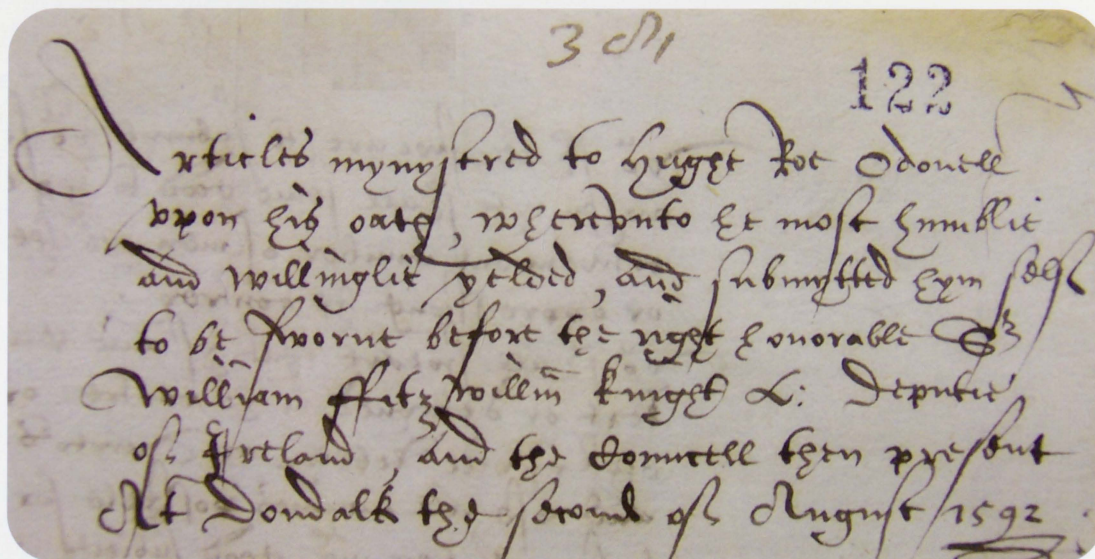 122
Articles mynystred to Hughe Roe Odonell
vpon his oath, wherevnto he most humblie
and willinglie yelded, and submytted hym self
to be sworne before the right honorable Sr
William ffitzwillm knight L: Deputie
of Ireland, and the Counsell then present
At Dondalk the second of August 1592